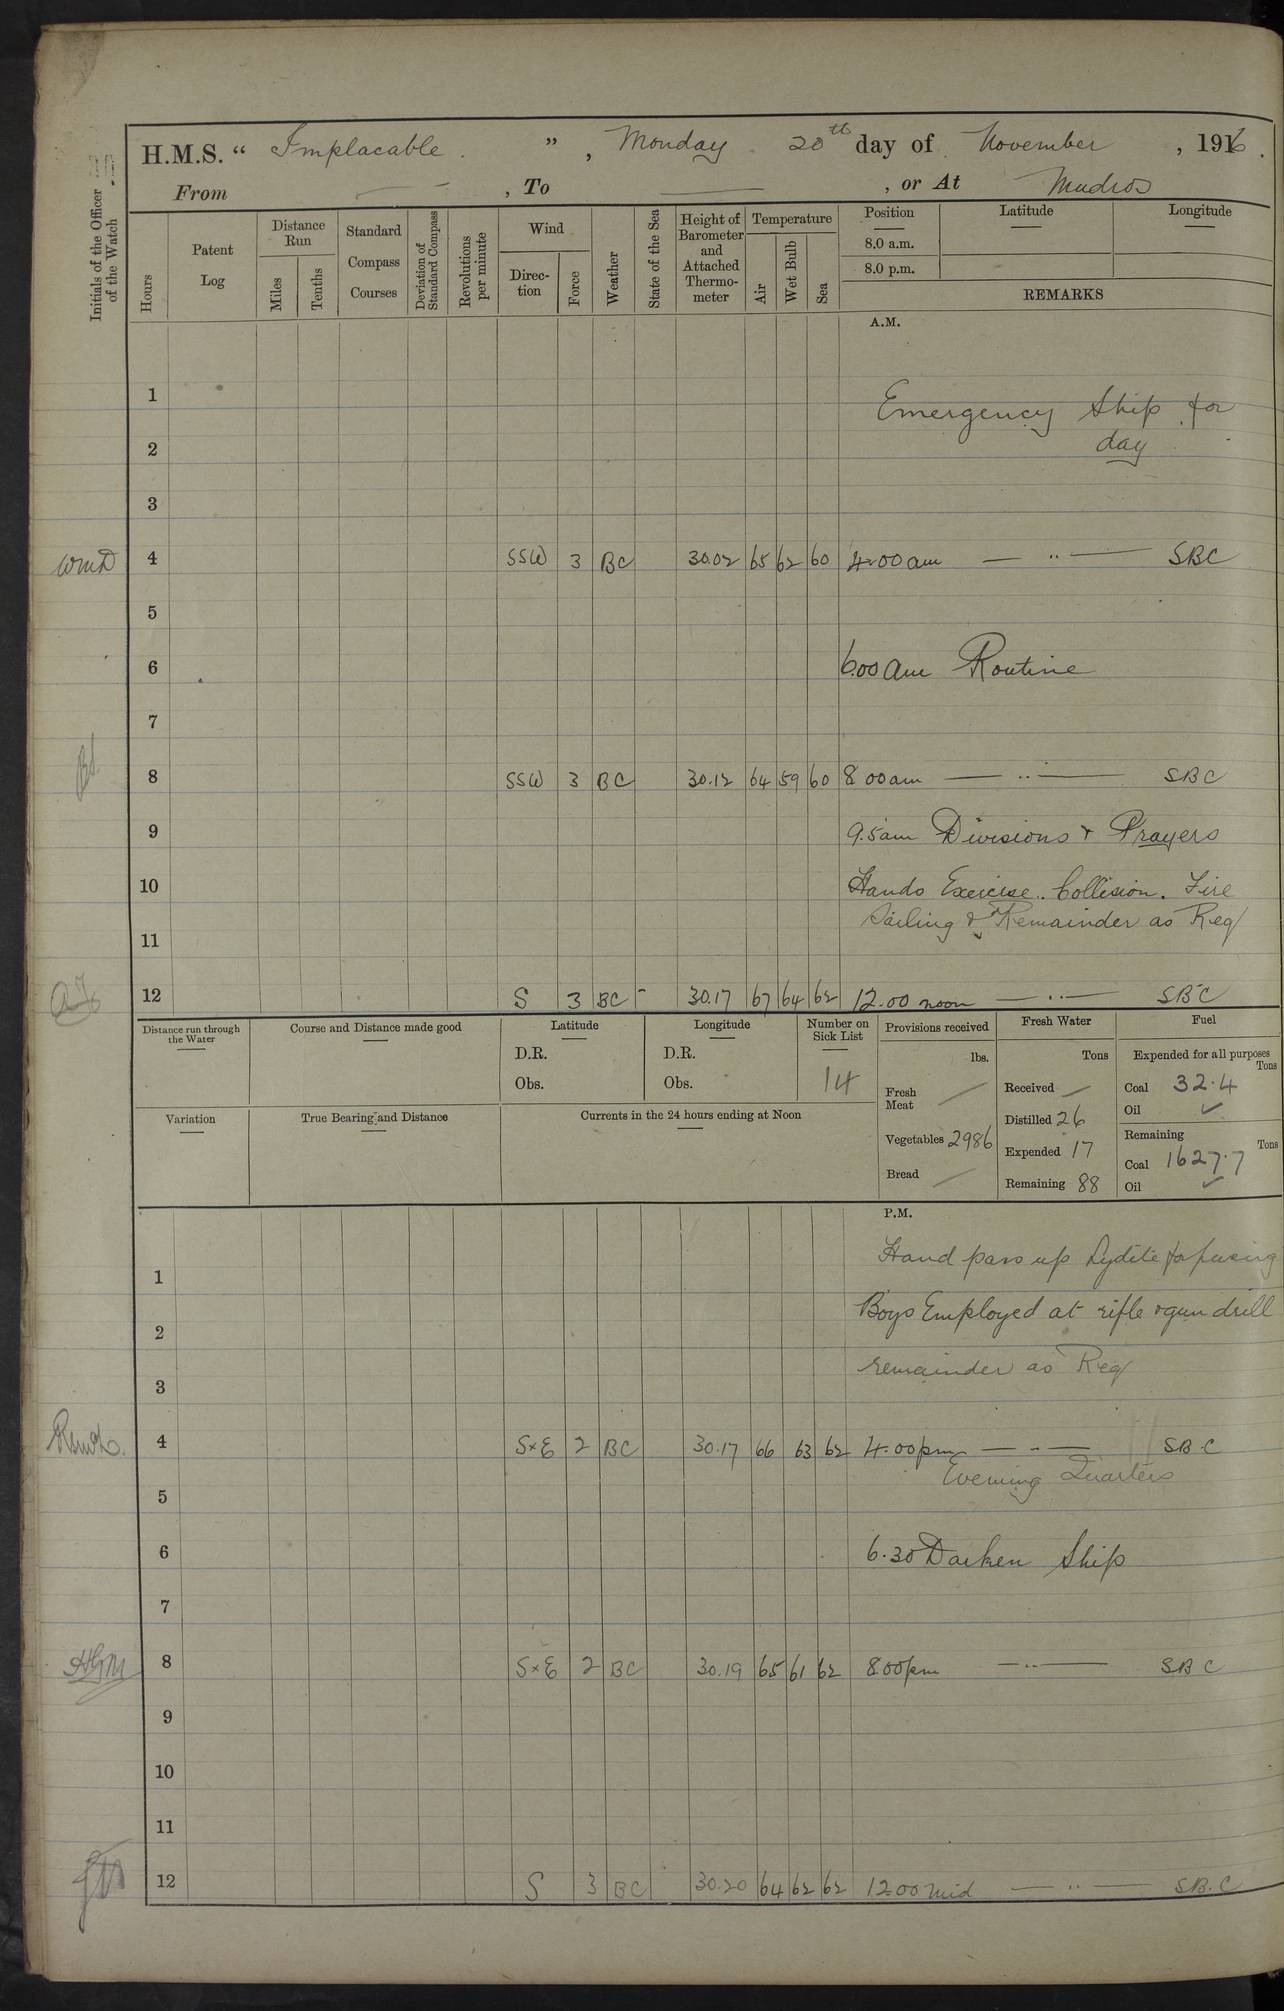 H.M.S. “ Implacable. ”, Monday 20th day of November, 1916.
From — , To — , or At Mudros
Initials of the Officer of the Watch
Hours
Patent Log
Distance Run
Miles
Tenths
Standard Compass Courses
Deviation of Standard Compass
Revolutions per minute
Wind
Direc-tion
Force
Weather
State of the Sea
Height of Barometer and Attached Thermo-meter
Temperature
Air
Wet Bulb
Sea
Position
8.0 a.m.
8.0 p.m.
Latitude
Longitude
REMARKS
A.M.
1
Emergency Ship for
day
2
3
4 SSW 3 BC 30.02 65 62 60 4.00 am — " — SBC
5
6 6.00 am Routine
7
8 SSW 3 BC 30.12 64 59 60 8 00 am — " — SBC
9 9.5 am Divisions & Prayers
10 Hands Exercise. Collision. Fire
Sailing & Remainder as Req
11
12 S 3 BC - 30.17 67 64 62 12.00 noon — " — SBC
Distance run through the Water
Course and Distance made good
Latitude
D.R.
Obs.
Longitude
D.R.
Obs.
Number on Sick List
14
Variation
True Bearing and Distance
Currents in the 24 hours ending at Noon
Provisions received
lbs.
Fresh Meat —
Vegetables 2986
Bread —
Fresh Water
Tons
Received —
Distilled 26
Expended 17
Remaining 88
Fuel
Expended for all purposes
Tons
Coal 32.4
Oil ✓
Remaining
Tons
Coal 1627.7
Oil ✓
P.M.
Hand pass up Lydite for fusing
1
Boys Employed at rifle & gun drill
2
remainder as Req
3
4 S×E 2 BC 30.17 66 63 62 4.00 pm — " — SB.C
Evening Quarters
5
6 6.30 Darken Ship
7
8 S×E 2 BC 30.19 65 61 62 8.00 pm — " — SBC
9
10
11
12 S 3 BC 30.20 64 62 62 12.00 mid — " — SB.C